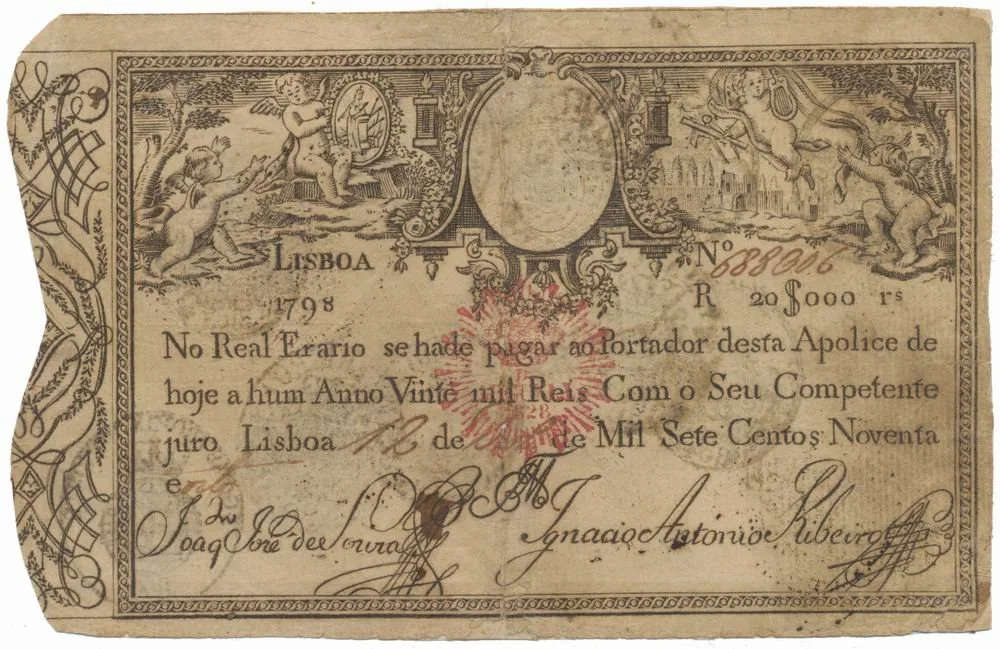 LISBOA Nº 688006
1798 R 20$000 rs
No Real Erario se hade pagar ao Portador desta Apolice de
hoje a hum Anno Vinte mil Reis Com o Seu Competente
juro Lisboa 12 de de Mil Sete Centos Noventa
e
Joaqm Jozé de Souza Ignacio Antonio Ribeiro